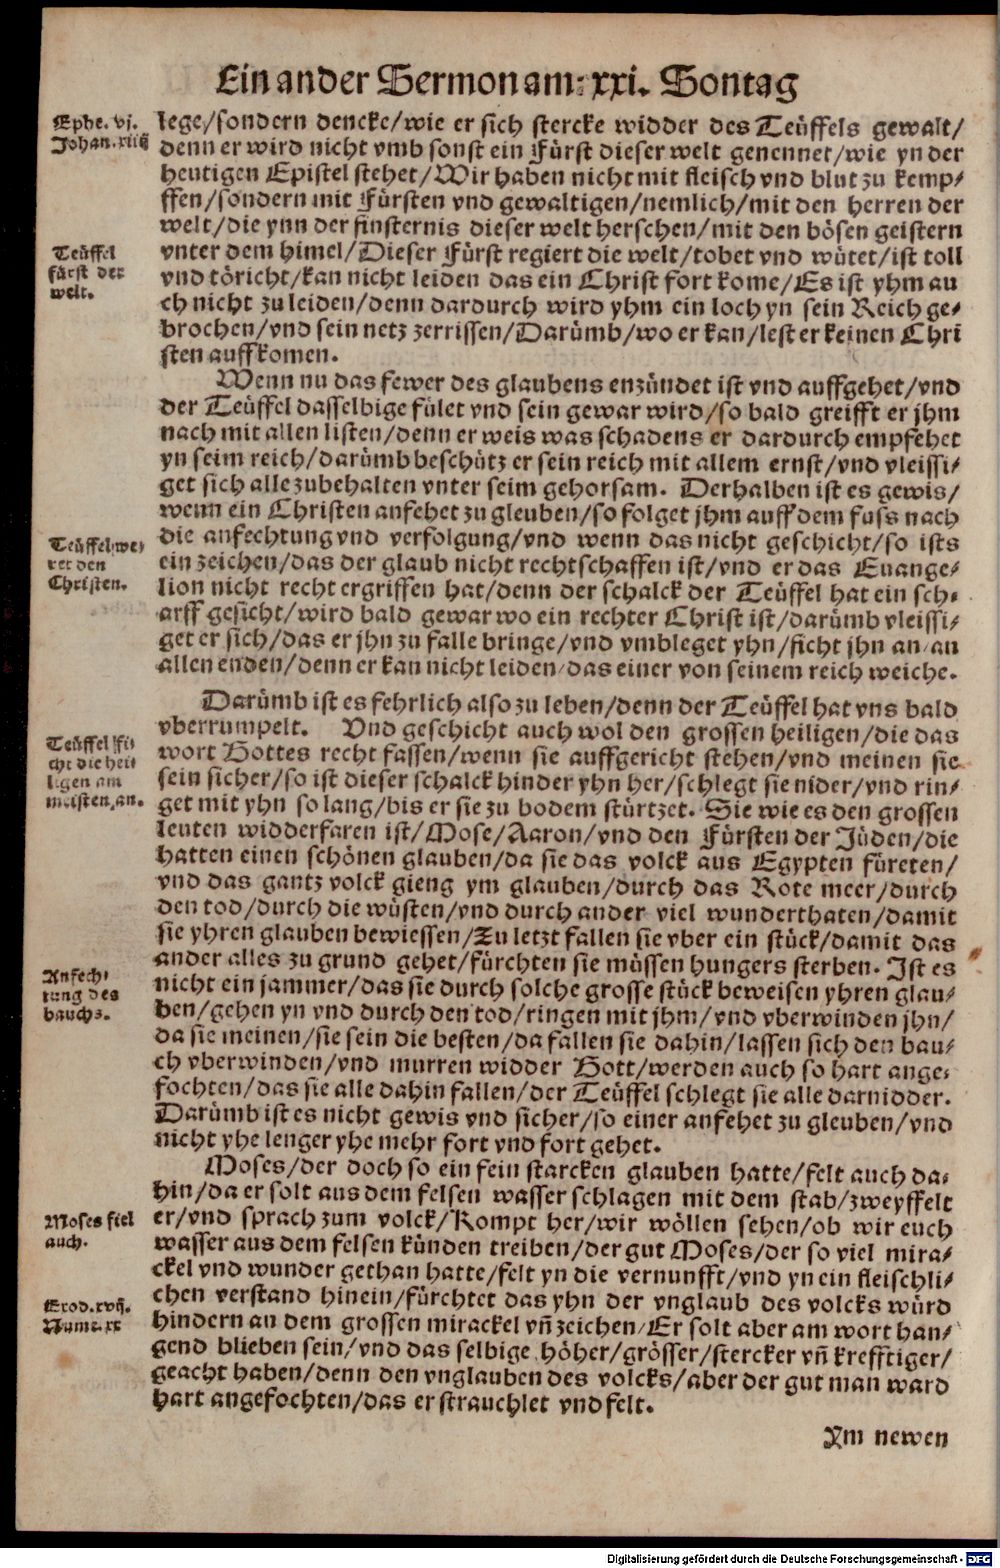 Ein ander Sermon am: xxi. Sontag
Ephe. vj.
Johan. xiiij
lege/sondern dencke/wie er sich stercke widder des Teüffels gewalt/
denn er wird nicht vmb sonst ein Fürst dieser welt genennet/wie yn der
heutigen Epistel stehet/Wir haben nicht mit fleisch vnd blut zu kemp-
ffen/sondern mit Fürsten vnd gewaltigen/nemlich/mit den herren der
welt/die ynn der finsternis dieser welt herschen/mit den bösen geistern
Teüffel
fürst der
welt.
vnter dem himel/Dieser Fürst regiert die welt/tobet vnd wütet/ist toll
vnd töricht/kan nicht leiden das ein Christ fort kome/Es ist yhm au
ch nicht zu leiden/denn dardurch wird yhm ein loch yn sein Reich ge-
brochen/vnd sein netz zerrissen/Darümb/wo er kan/lest er keinen Chri
sten auffkomen.
Wenn nu das fewer des glaubens enzündet ist vnd auffgehet/vnd
der Teüffel dasselbige fület vnd sein gewar wird/so bald greifft er jhm
nach mit allen listen/denn er weis was schadens er dardurch empfehet
yn seim reich/darümb beschütz er sein reich mit allem ernst/vnd vleissi-
get sich alle zubehalten vnter seim gehorsam. Derhalben ist es gewis/
wenn ein Christen anfehet zu gleuben/so folget jhm auff dem fuss nach
Teüffel we-
ret den
Christen.
die anfechtung vnd verfolgung/vnd wenn das nicht geschicht/so ists
ein zeichen/das der glaub nicht rechtschaffen ist/vnd er das Euange-
lion nicht recht ergriffen hat/denn der schalck der Teüffel hat ein sch-
arff gesicht/wird bald gewar wo ein rechter Christ ist/darümb vleissi-
get er sich/das er jhn zu falle bringe/vnd vmbleget yhn/ficht jhn an/an
allen enden/denn er kan nicht leiden/das einer von seinem reich weiche.
Darümb ist es fehrlich also zu leben/denn der Teüffel hat vns bald
vberrumpelt. Vnd geschicht auch wol den grossen heiligen/die das
Teüffel fi-
cht die hei-
ligen am
meisten an.
wort Gottes recht fassen/wenn sie auffgericht stehen/vnd meinen sie
sein sicher/so ist dieser schalck hinder yhn her/schlegt sie nider/vnd rin-
get mit yhn so lang/bis er sie zu bodem stürtzet. Sie wie es den grossen
leuten widderfaren ist/Mose/Aaron/vnd den Fürsten der Jüden/die
hatten einen schönen glauben/da sie das volck aus Egypten füreten/
vnd das gantz volck gieng ym glauben/durch das Rote meer/durch
den tod/durch die wüsten/vnd durch ander viel wunderthaten/damit
sie yhren glauben bewiessen/Zu letzt fallen sie vber ein stück/damit das
ander alles zu grund gehet/fürchten sie müssen hungers sterben. Ist es
Anfech-
tung des
bauchs.
nicht ein jammer/das sie durch solche grosse stück beweisen yhren glau-
ben/gehen yn vnd durch den tod/ringen mit jhm/vnd vberwinden jhn/
da sie meinen/sie sein die besten/da fallen sie dahin/lassen sich den bau-
ch vberwinden/vnd murren widder Gott/werden auch so hart ange-
fochten/das sie alle dahin fallen/der Teüffel schlegt sie alle darnidder.
Darümb ist es nicht gewis vnd sicher/so einer anfehet zu gleuben/vnd
nicht yhe lenger yhe mehr fort vnd fort gehet.
Moses/der doch so ein fein starcken glauben hatte/felt auch da-
hin/da er solt aus dem felsen wasser schlagen mit dem stab/zweyffelt
Moses fiel
auch.
er/vnd sprach zum volck/Kompt her/wir wöllen sehen/ob wir euch
wasser aus dem felsen künden treiben/der gut Moses/der so viel mira-
ckel vnd wunder gethan hatte/felt yn die vernunfft/vnd yn ein fleischli-
Exod. xvij.
Nume. xx
chen verstand hinein/fürchtet das yhn der vnglaub des volcks würd
hindern an dem grossen mirackel vñ zeichen/Er solt aber am wort han-
gend blieben sein/vnd das selbige höher/grösser/stercker vñ krefftiger/
geacht haben/denn den vnglauben des volcks/aber der gut man ward
hart angefochten/das er strauchlet vnd felt.
Ym newen
Digitalisierung gefördert durch die Deutsche Forschungsgemeinschaft - DFG